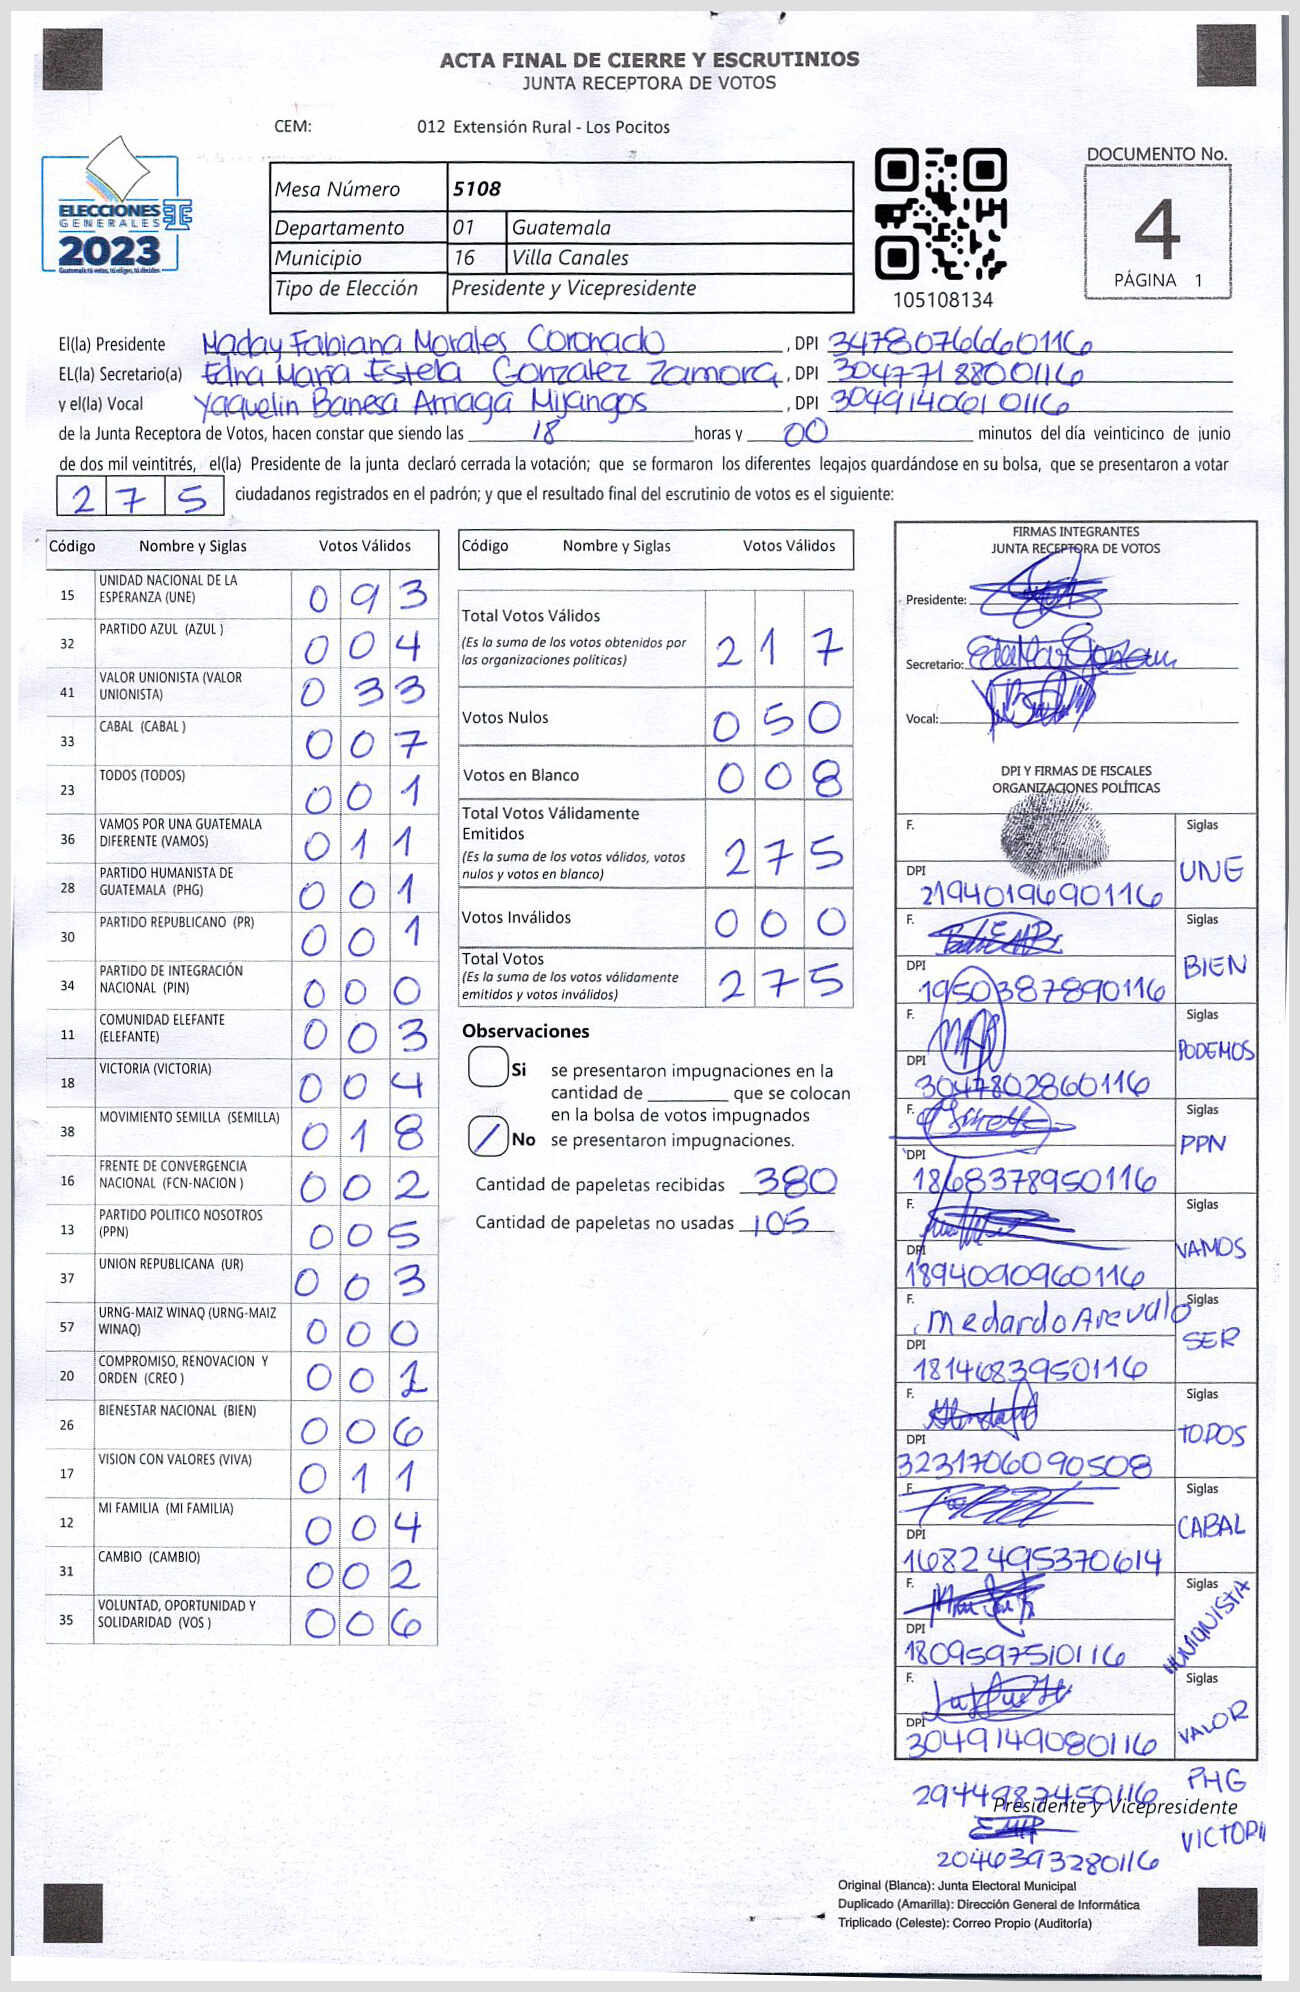 ACTA FINAL DE CIERRE Y ESCRUTINIOS
JUNTA RECEPTORA DE VOTOS
CEM: 012 Extensión Rural - Los Pocitos
ELECCIONES
GENERALES
2023
Guatemala: tú votas, tú eliges, tú decides.
Mesa Número 5108
Departamento 01 Guatemala
Municipio 16 Villa Canales
Tipo de Elección Presidente y Vicepresidente
105108134
DOCUMENTO No.
4
PÁGINA 1
El(la) Presidente Maday Fabiana Morales Coronado, DPI 3478076660116
EL(la) Secretario(a) Edna María Estela Gonzalez Zamora, DPI 3047718800116
y el(la) Vocal Yaquelin Banesa Arriaga Mijangos, DPI 3049140610116
de la Junta Receptora de Votos, hacen constar que siendo las 18 horas y 00 minutos del día veinticinco de junio
de dos mil veintitrés, el(la) Presidente de la junta declaró cerrada la votación; que se formaron los diferentes legajos guardándose en su bolsa, que se presentaron a votar
275 ciudadanos registrados en el padrón; y que el resultado final del escrutinio de votos es el siguiente:
Código Nombre y Siglas Votos Válidos
15 UNIDAD NACIONAL DE LA ESPERANZA (UNE) 093
32 PARTIDO AZUL (AZUL ) 004
41 VALOR UNIONISTA (VALOR UNIONISTA) 033
33 CABAL (CABAL ) 007
23 TODOS (TODOS) 001
36 VAMOS POR UNA GUATEMALA DIFERENTE (VAMOS) 011
28 PARTIDO HUMANISTA DE GUATEMALA (PHG) 001
30 PARTIDO REPUBLICANO (PR) 001
34 PARTIDO DE INTEGRACIÓN NACIONAL (PIN) 000
11 COMUNIDAD ELEFANTE (ELEFANTE) 003
18 VICTORIA (VICTORIA) 004
38 MOVIMIENTO SEMILLA (SEMILLA) 018
16 FRENTE DE CONVERGENCIA NACIONAL (FCN-NACION ) 002
13 PARTIDO POLITICO NOSOTROS (PPN) 005
37 UNION REPUBLICANA (UR) 003
57 URNG-MAIZ WINAQ (URNG-MAIZ WINAQ) 000
20 COMPROMISO, RENOVACION Y ORDEN (CREO ) 001
26 BIENESTAR NACIONAL (BIEN) 006
17 VISION CON VALORES (VIVA) 011
12 MI FAMILIA (MI FAMILIA) 004
31 CAMBIO (CAMBIO) 002
35 VOLUNTAD, OPORTUNIDAD Y SOLIDARIDAD (VOS ) 006
Código Nombre y Siglas Votos Válidos
Total Votos Válidos 217
(Es la suma de los votos obtenidos por
las organizaciones políticas)
Votos Nulos 050
Votos en Blanco 008
Total Votos Válidamente
Emitidos 275
(Es la suma de los votos válidos, votos
nulos y votos en blanco)
Votos Inválidos 000
Total Votos 275
(Es la suma de los votos válidamente
emitidos y votos inválidos)
Observaciones
Si se presentaron impugnaciones en la
cantidad de ________ que se colocan
en la bolsa de votos impugnados
No se presentaron impugnaciones.
Cantidad de papeletas recibidas 380
Cantidad de papeletas no usadas 105
FIRMAS INTEGRANTES
JUNTA RECEPTORA DE VOTOS
Presidente:
Secretario:
Vocal:
DPI Y FIRMAS DE FISCALES
ORGANIZACIONES POLÍTICAS
F. Siglas
DPI 2194019690116 UNE
F.
DPI 1950387890116 BIEN
F. Siglas
DPI 3047802860116 PODEMOS
F. Siglas
DPI 1868378950116 PPN
F. Siglas
DPI 1894090960116 VAMOS
F. Medardo Arevalo Siglas
DPI 1814683950116 SER
F. Siglas
DPI 3231706090508 TODOS
F. Siglas
DPI 1682495370614 CABAL
F. Siglas
DPI 1809597510116 UNIONISTA
F. Siglas
DPI 3049149080116 VALOR
2944987450116 PHG
Presidente y Vicepresidente
VICTORI
2046393280116
Original (Blanca): Junta Electoral Municipal
Duplicado (Amarilla): Dirección General de Informática
Triplicado (Celeste): Correo Propio (Auditoría)